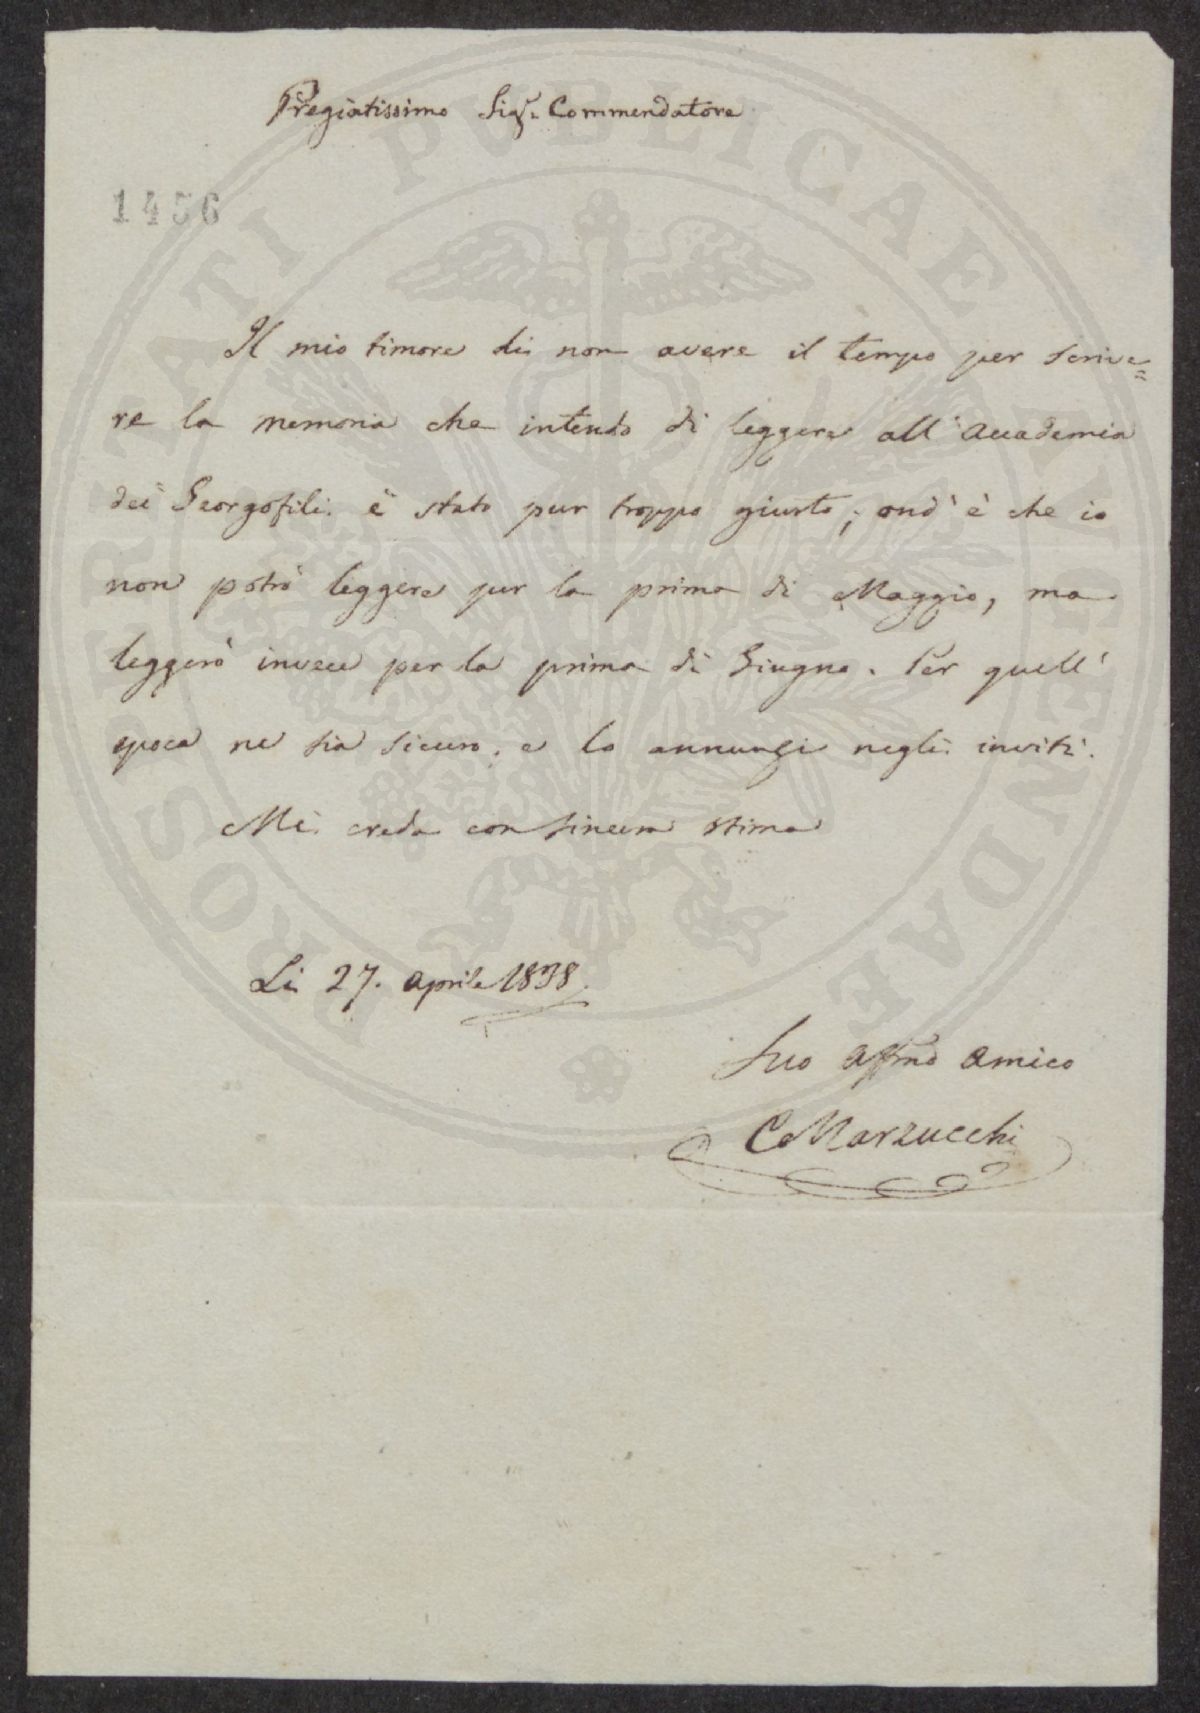 Pregiatissimo Sigr. Commendatore
1456
Il mio timore di non avere il tempo per scrive=
re la memoria che intendo di leggere all'Accademia
dei Georgofili è stato pur troppo giusto; ond'è che io
non potrò leggere per la prima di Maggio, ma
leggerò invece per la prima di Giugno. Per quell'
epoca ne sia sicuro, e lo annunzi negli inviti.
Mi creda con sincera stima
Li 27. Aprile 1838.
Suo affmo amico
C Marzucchi
PROSPERITATI PUBLICAE AUGENDAE